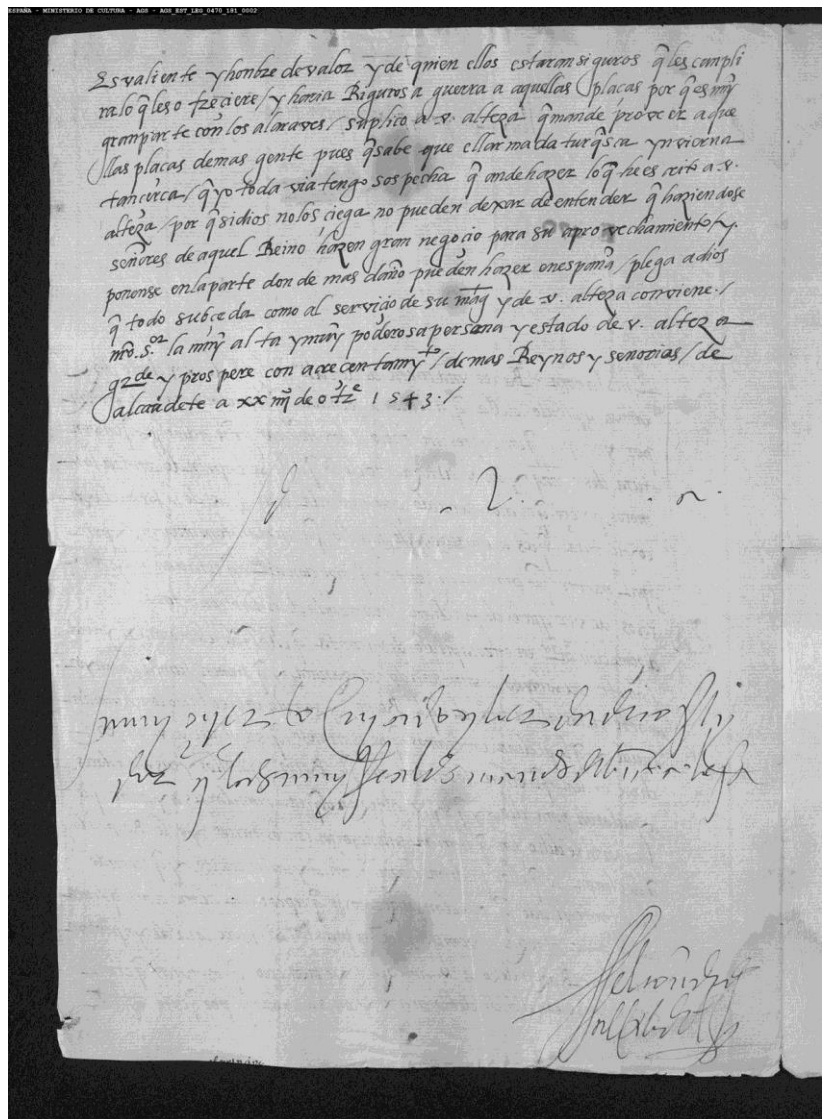 ESPAÑA - MINISTERIO DE CULTURA - AGS - AGS_EST_LEG_0470_181_0002
Es valiente y honbre de valor y de quien ellos estaran siguros q̃ les cunpli
ra lo q̃ les ofreciere / y haria Rigurosa guerra a aquellas plaças por q̃ es muy
gran parte con los alaraves / suplico a .v. alteza q̃ mande proveer aque
llas plaças de mas gente pues q̃ sabe que el armada turq̃sca ynvierna
tan cerca / q̃ yo toda via tengo sospecha q̃ an de hazer lo q̃ he escrito a .v.
alteza / por q̃ si dios no los ciega no pueden dexar de entender q̃ haziendose
señores de aquel Reino hazen gran negocio para su aprovechamiento / y.
ponense en la parte donde mas daño pueden hazer en españa / plega a dios
q̃ todo subceda como al servicio de su mag y de .v. alteza conviene. /
nro. s.or la muy alta y muy poderosa persona y estado de v. alteza
g.de y prospere con acrecentamyto / de mas Reynos y señorias / de
alcaudete a xx de otre 1543. /
muy
los muy Reales manos